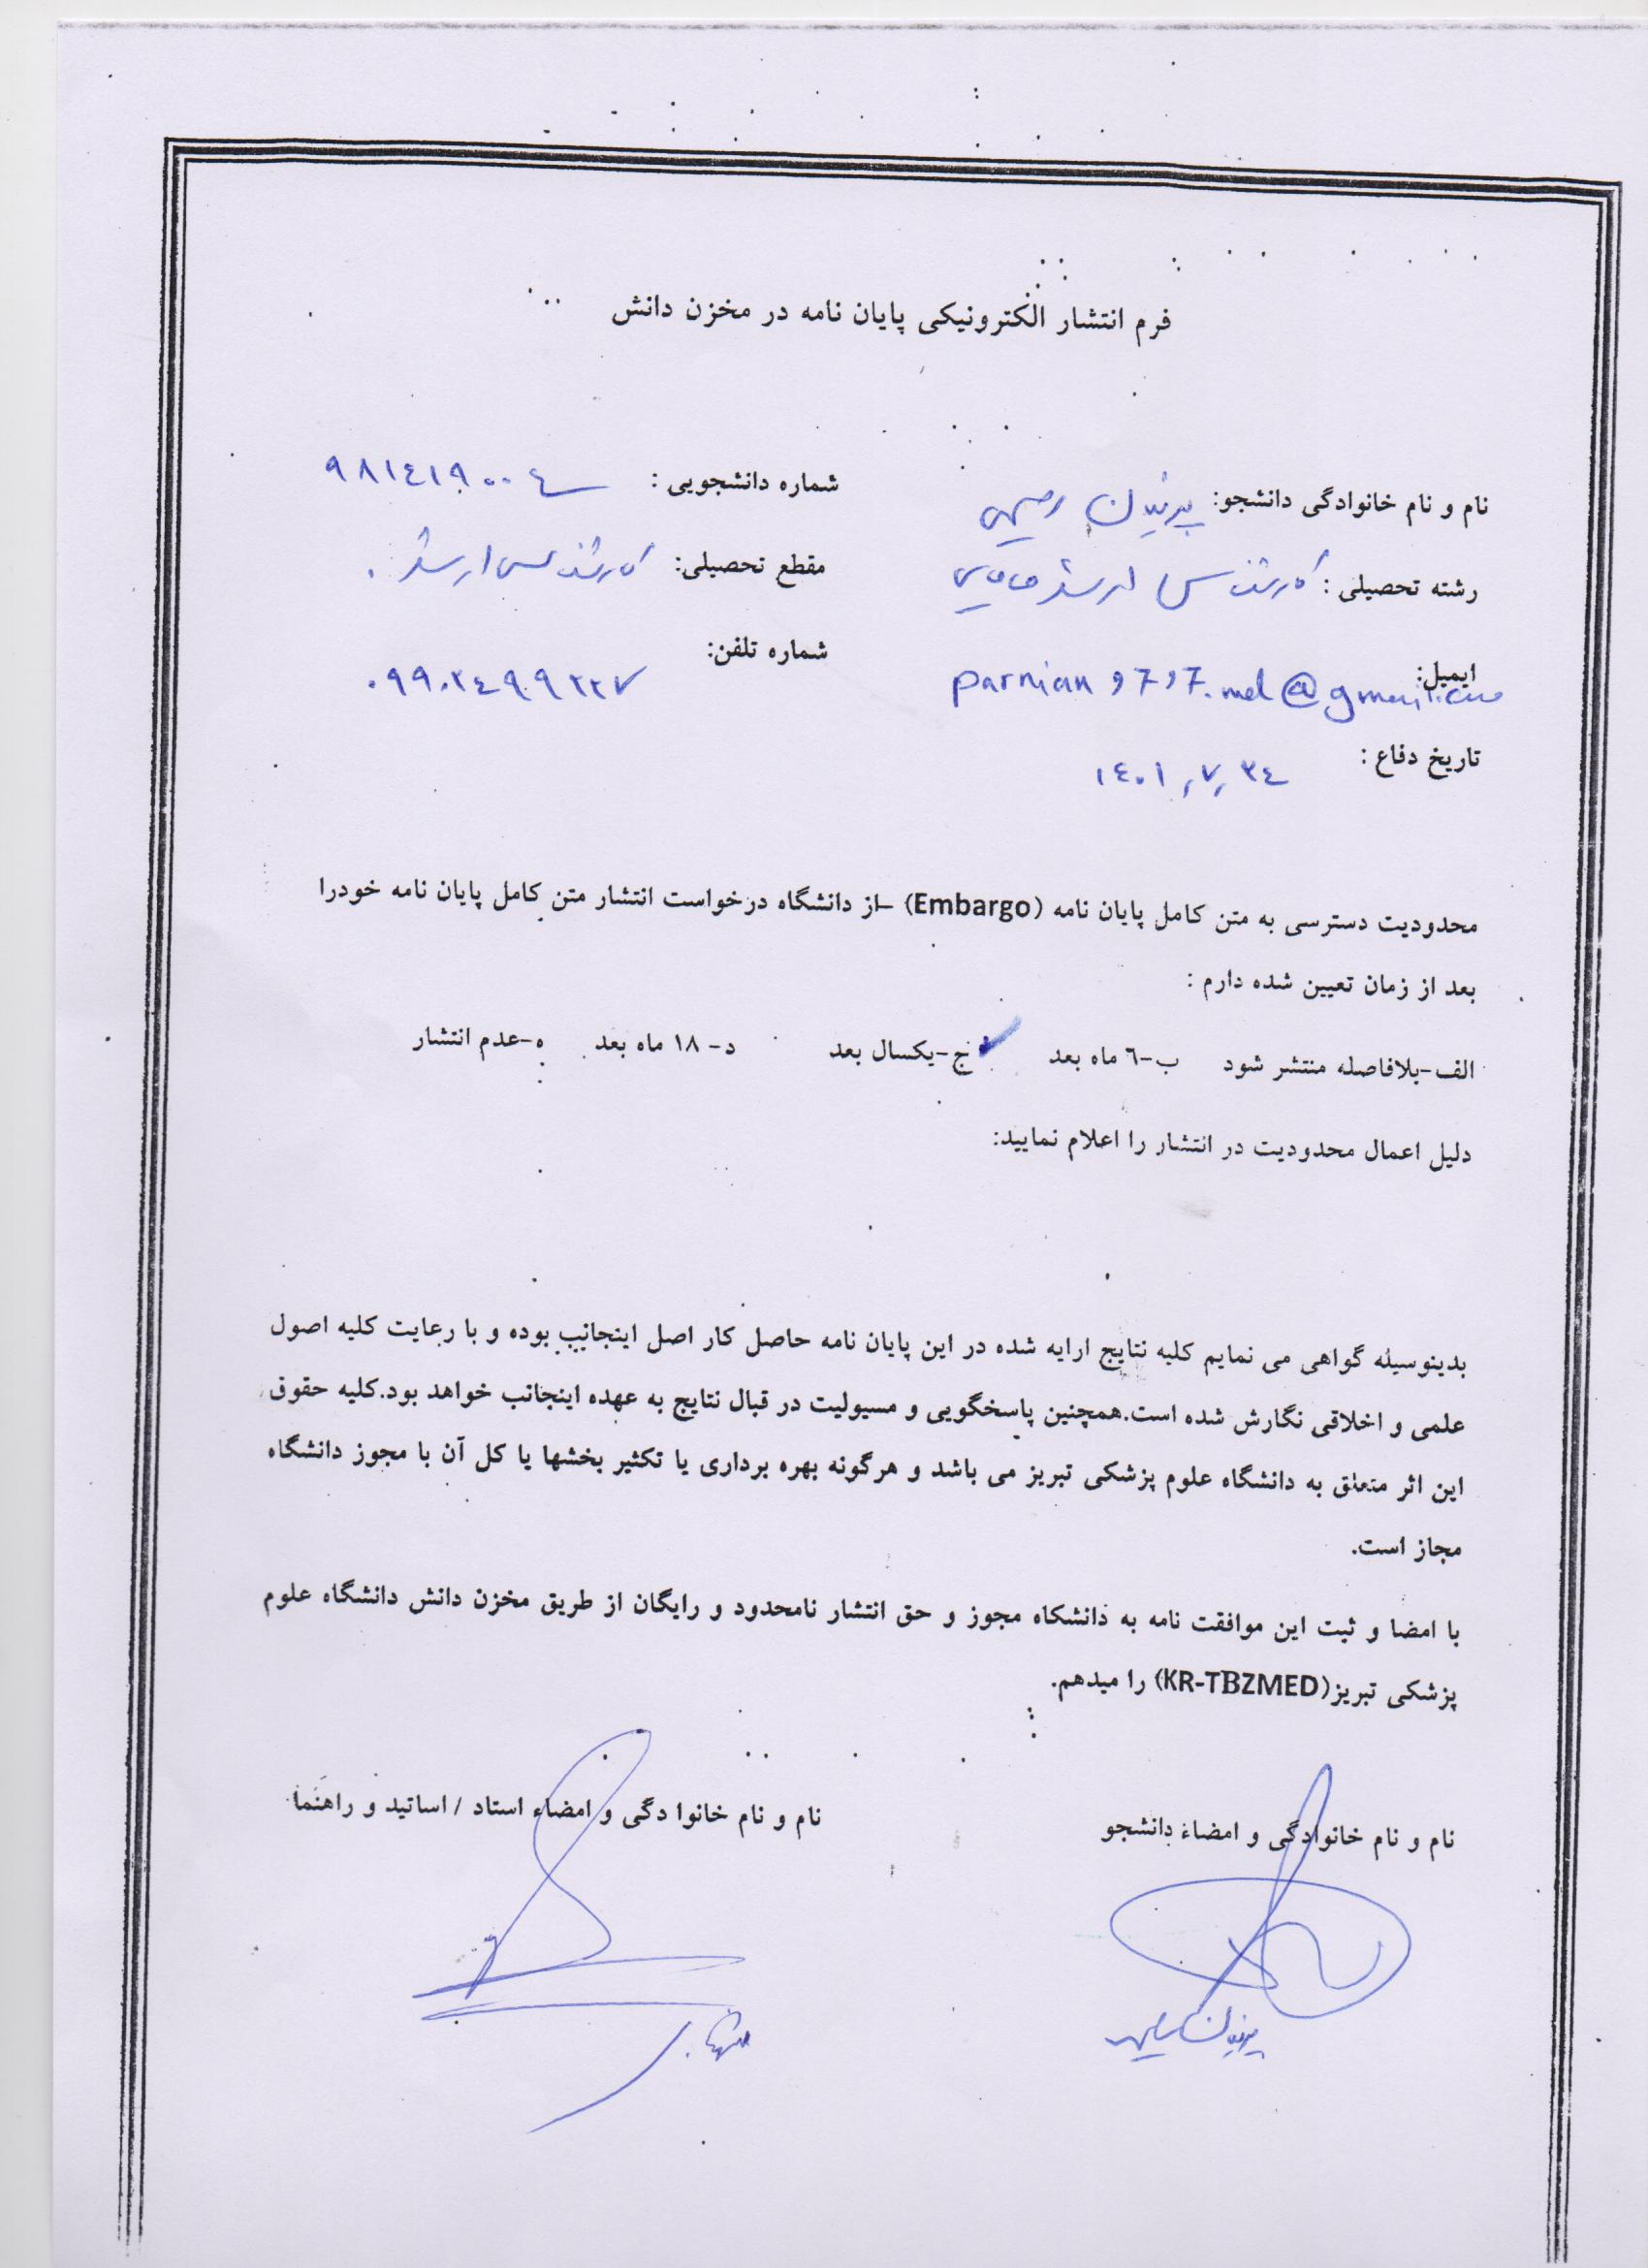 فرم انتشار الکترونیکی پایان نامه در مخزن دانش
نام و نام خانوادگی دانشجو: پرنیان رحیمی شماره دانشجویی : ٩٨١٤١٩٠٠٤
رشته تحصیلی : کارشناسی ارشد مامایی مقطع تحصیلی: کارشناسی ارشد.
ایمیل: شماره تلفن: ٠٩٩٠٢٤٩٩٢٢٧
تاریخ دفاع :
محدودیت دسترسی به متن کامل پایان نامه (Embargo) –از دانشگاه درخواست انتشار متن کامل پایان نامه خودرا
بعد از زمان تعیین شده دارم :
الف-بلافاصله منتشر شود ب-٦ ماه بعد ج-یکسال بعد د- ١٨ ماه بعد ه-عدم انتشار
دلیل اعمال محدودیت در انتشار را اعلام نمایید:
بدینوسیله گواهی می نمایم کلیه نتایج ارایه شده در این پایان نامه حاصل کار اصل اینجانب بوده و با رعایت کلیه اصول
علمی و اخلاقی نگارش شده است.همچنین پاسخگویی و مسیولیت در قبال نتایج به عهده اینجانب خواهد بود.کلیه حقوق
این اثر متعلق به دانشگاه علوم پزشکی تبریز می باشد و هرگونه بهره برداری یا تکثیر بخشها یا کل آن با مجوز دانشگاه
مجاز است.
با امضا و ثبت این موافقت نامه به دانشکاه مجوز و حق انتشار نامحدود و رایگان از طریق مخزن دانش دانشگاه علوم
پزشکی تبریز(KR-TBZMED) را میدهم.
نام و نام خانوادگی و امضاء دانشجو نام و نام خانوا دگی و امضاء استاد / اساتید و راهنما
پرنیان رحیمی